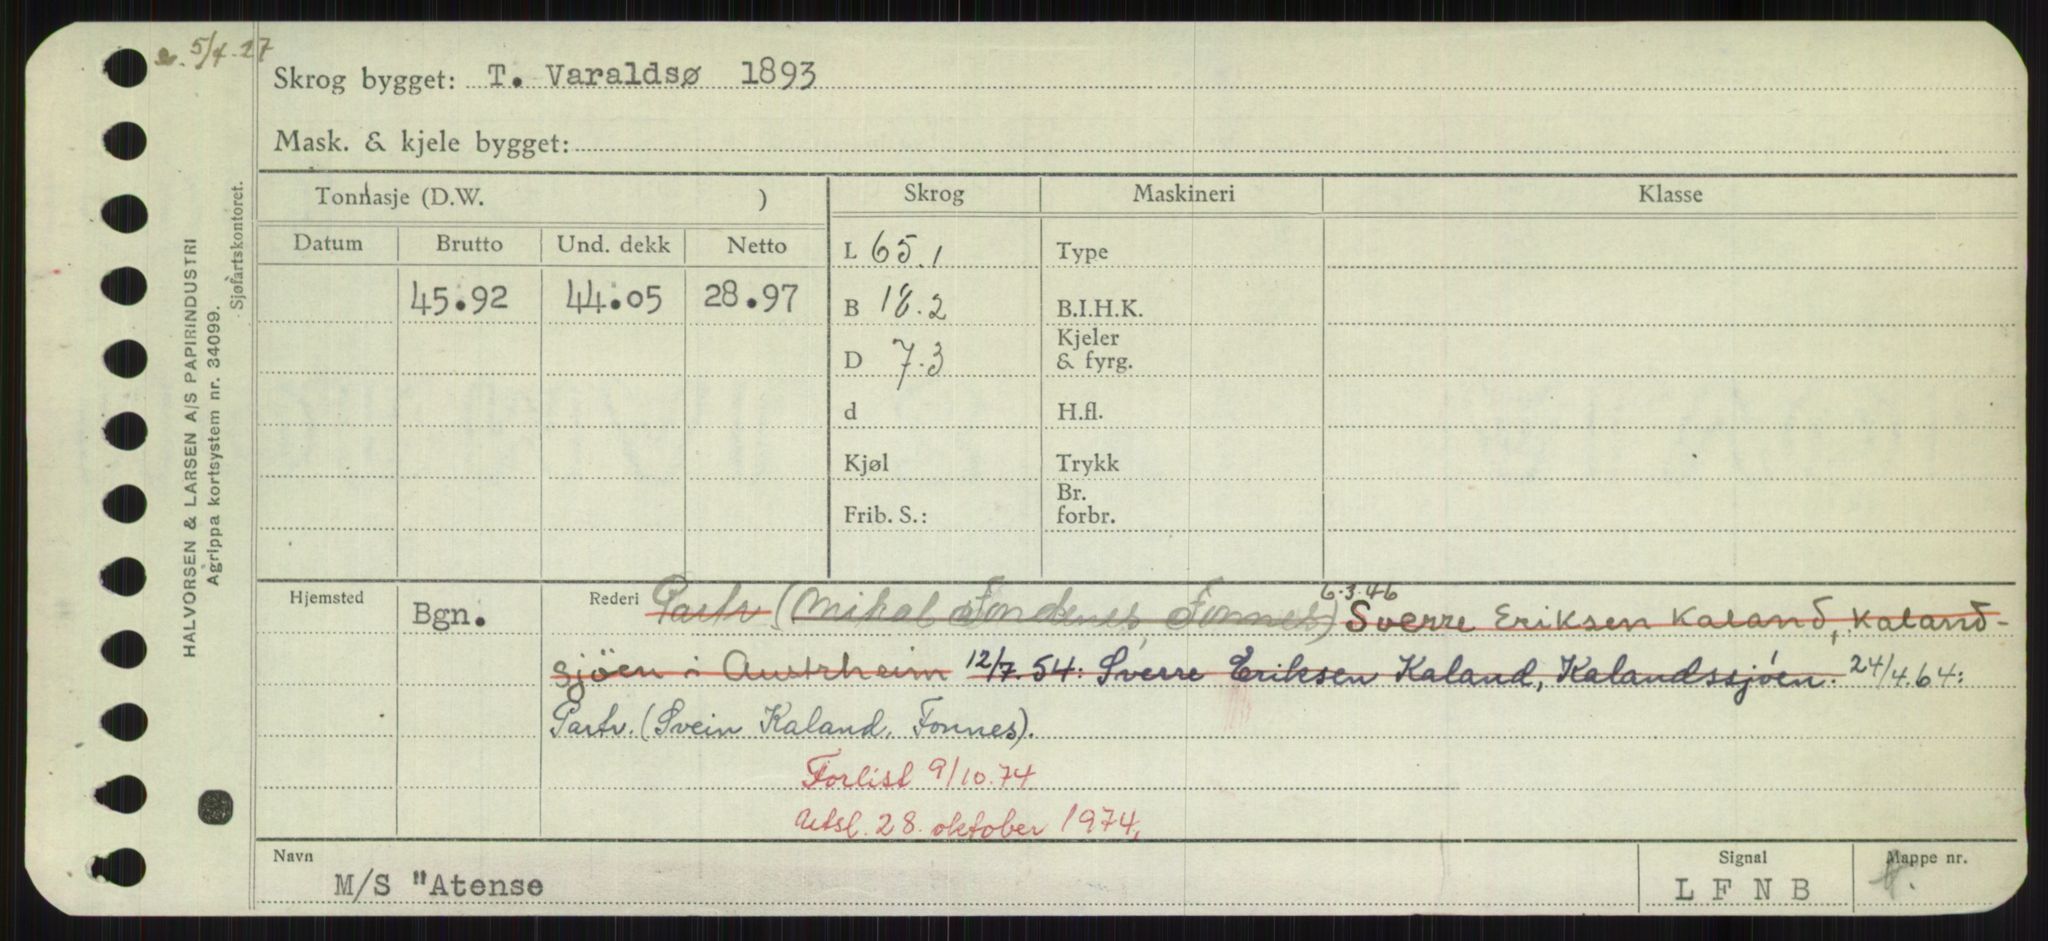 5/4.27
Skrog bygget: T. Varaldsø 1893
Mask. & kjele bygget:
Tonnasje (D.W. ) Skrog Maskineri Klasse
Datum Brutto Und. dekk Netto L 65.1 Type
45.92 44.05 28.97 B 18.2 B.I.H.K.
D 7.3 Kjeler & fyrg.
d H.fl.
Kjøl Trykk
Frib. S.: Br. forbr.
Hjemsted Bgn. Rederi Partr. (Mikal Fondenes, Fonnes) 6.3.46 Sverre Eriksen Kaland, Kaland-
sjöen i Austrheim 12/7.54: Sverre Eriksen Kaland, Kalandssjöen. 24/4.64:
Partr. (Svein Kaland, Fonnes).
Forlist 9/10.74
28. oktober 1974.
Navn Signal Mappe nr.
M/S "Atense L F N B
HALVORSEN & LARSEN A/S PAPIRINDUSTRI
Agrippa kortsystem nr. 34099.
Sjøfartskontoret.